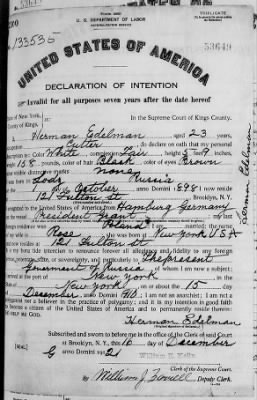 U. S. DEPARTMENT OF LABOR
TRIPLICATE
53649
UNITED STATES OF AMERICA
DECLARATION OF INTENTION
Invalid for all purposes seven years after the date hereof
State of New York,
County of Kings,
In the Supreme Court of Kings County.
Herman Edelman aged 23 years,
occupation Cutter do declare on oath that my personal
description is: Color White, complexion Fair, height 5 feet 7 inches,
weight 158 pounds, color of hair Black, color of eyes Brown
other visible distinctive marks none
Russia
October, anno Domini 1898; I now reside
Fulton St, Brooklyn, N.Y.
United States of America from Hamburg Germany
President Grant
Poland; I am married; the name
Rose; she was born at New York U.S.A
Fulton St
It is my bona fide intention to renounce forever all allegiance and fidelity to any foreign
prince, potentate, state, or sovereignty, and particularly to The present
Government of Russia, of whom I am now a subject;
arrived at the port of New York
New York, on or about the 15 day
December, anno Domini 1910; I am not an anarchist; I am not a
polygamist nor a believer in the practice of polygamy; and it is my intention in good faith
to become a citizen of the United States of America and to permanently reside therein:
SO HELP ME GOD.
Herman Edelman
Subscribed and sworn to before me in the office of the Clerk of said Court
at Brooklyn, N.Y., this 16 day of December
anno Domini 1921
Clerk of the Supreme Court.
By William J.
Deputy Clerk.
Herman Edelman